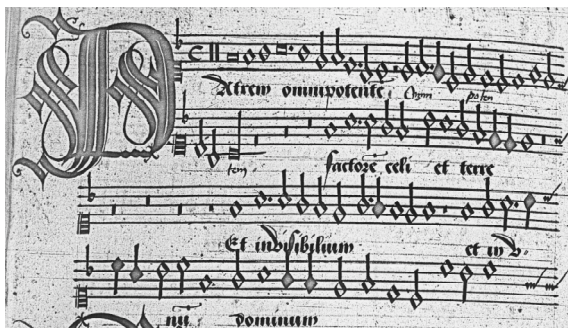 Patrem omnipotentē Omni poten
tem factorē celi et terre
Et invisibilium et in v.
nū dominum